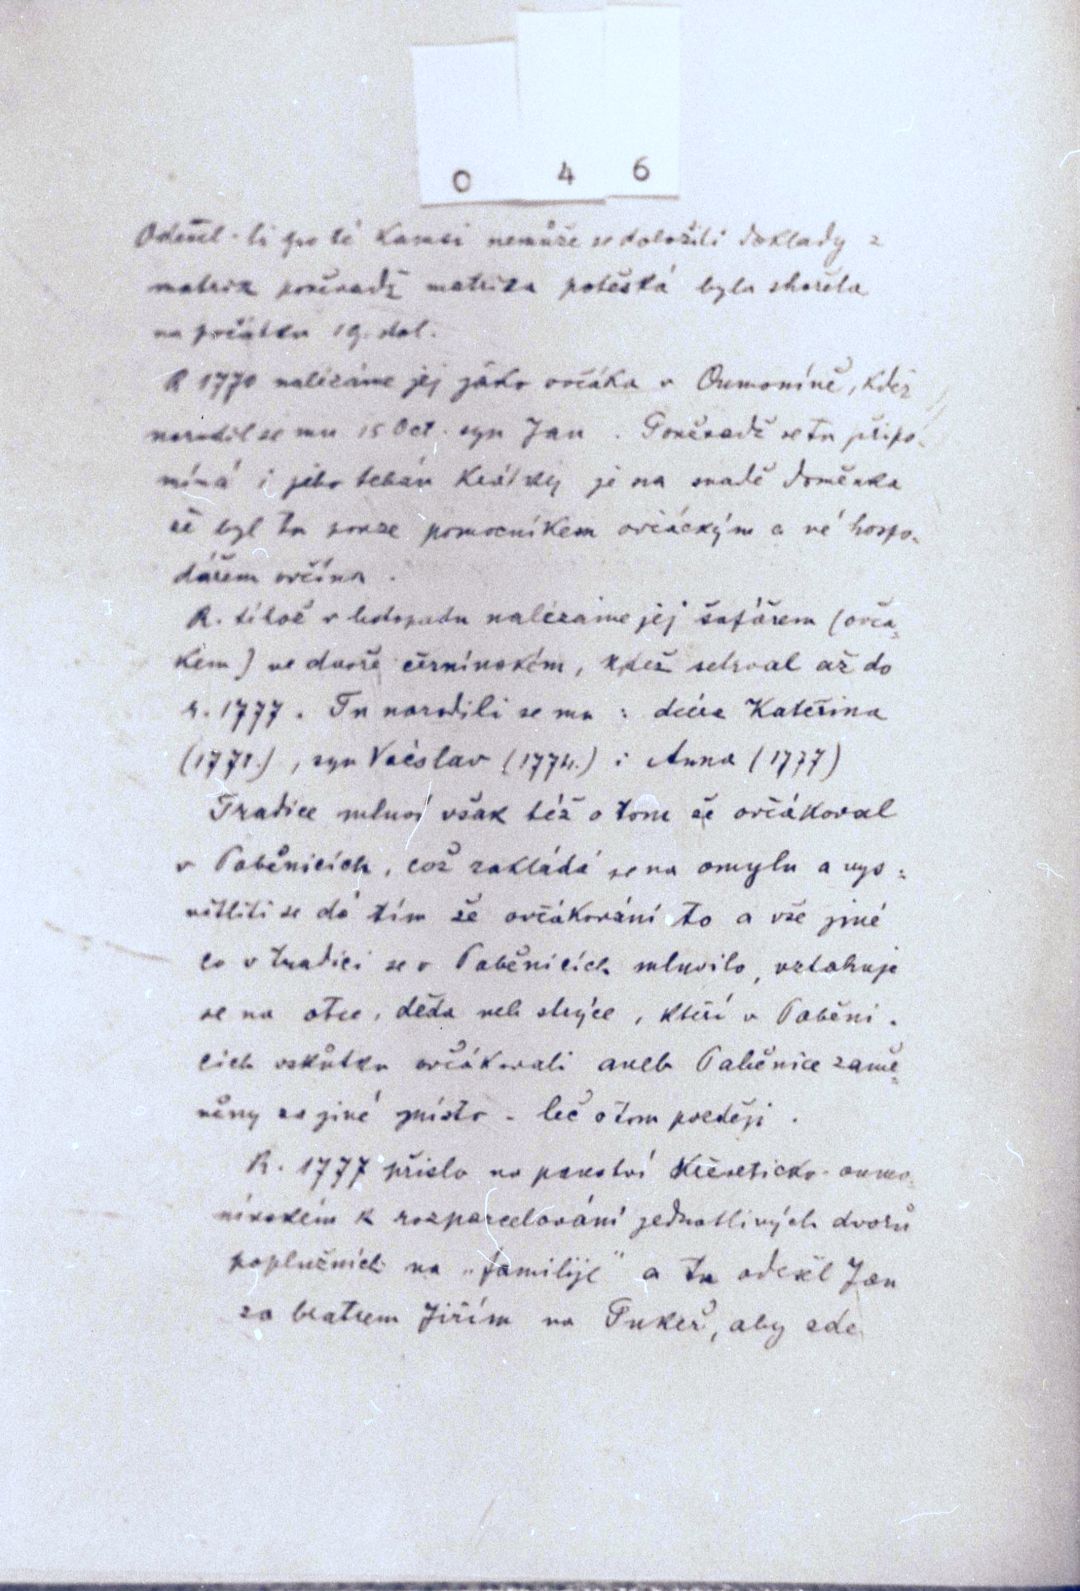 0 4 6
Odešel-li po té kamsi nemůže se doložiti doklady z
matrik poněvadž matrika potěšká byla shořela
na počátku 19. stol.
R 1770 nalézáme jej jako ovčáka v Oumoníně, kdež
narodil se mu 15 Oct. syn Jan. Poněvadž se tu připo-
míná i jeho tchán Krátký je na snadě domněnka
že byl tu pouze pomocníkem ovčáckým a né hospo-
dářem ovčína.
R. téhož v listopadu nalézáme jej šafářem (ovčá-
kem) ve dvoře černínském, kdež setrval až do
r. 1777. Tu narodili se mu: dcera Kateřina
, syn Václav (1774.) i Anna (1777)
Tradice mluví však též o tom že ovčákoval
v Paběnicích, což zakládá se na omylu a vys-
větliti se dá tím že ovčákování to a vše jiné
co v tradici se o Paběnicích mluvilo, vztahuje
se na otce, děda neb strýce, kteří v Paběni-
cích vskutku ovčákovali aneb Paběnice zamě-
něny za jiné místo - leč o tom později.
R. 1777 přišlo na panství Křeseticko-oumo-
nínském k rozparcelování jednotlivých dvorů
poplužních na „familije" a tu odešel Jan
za bratrem Jiřím na Pukeř, aby zde